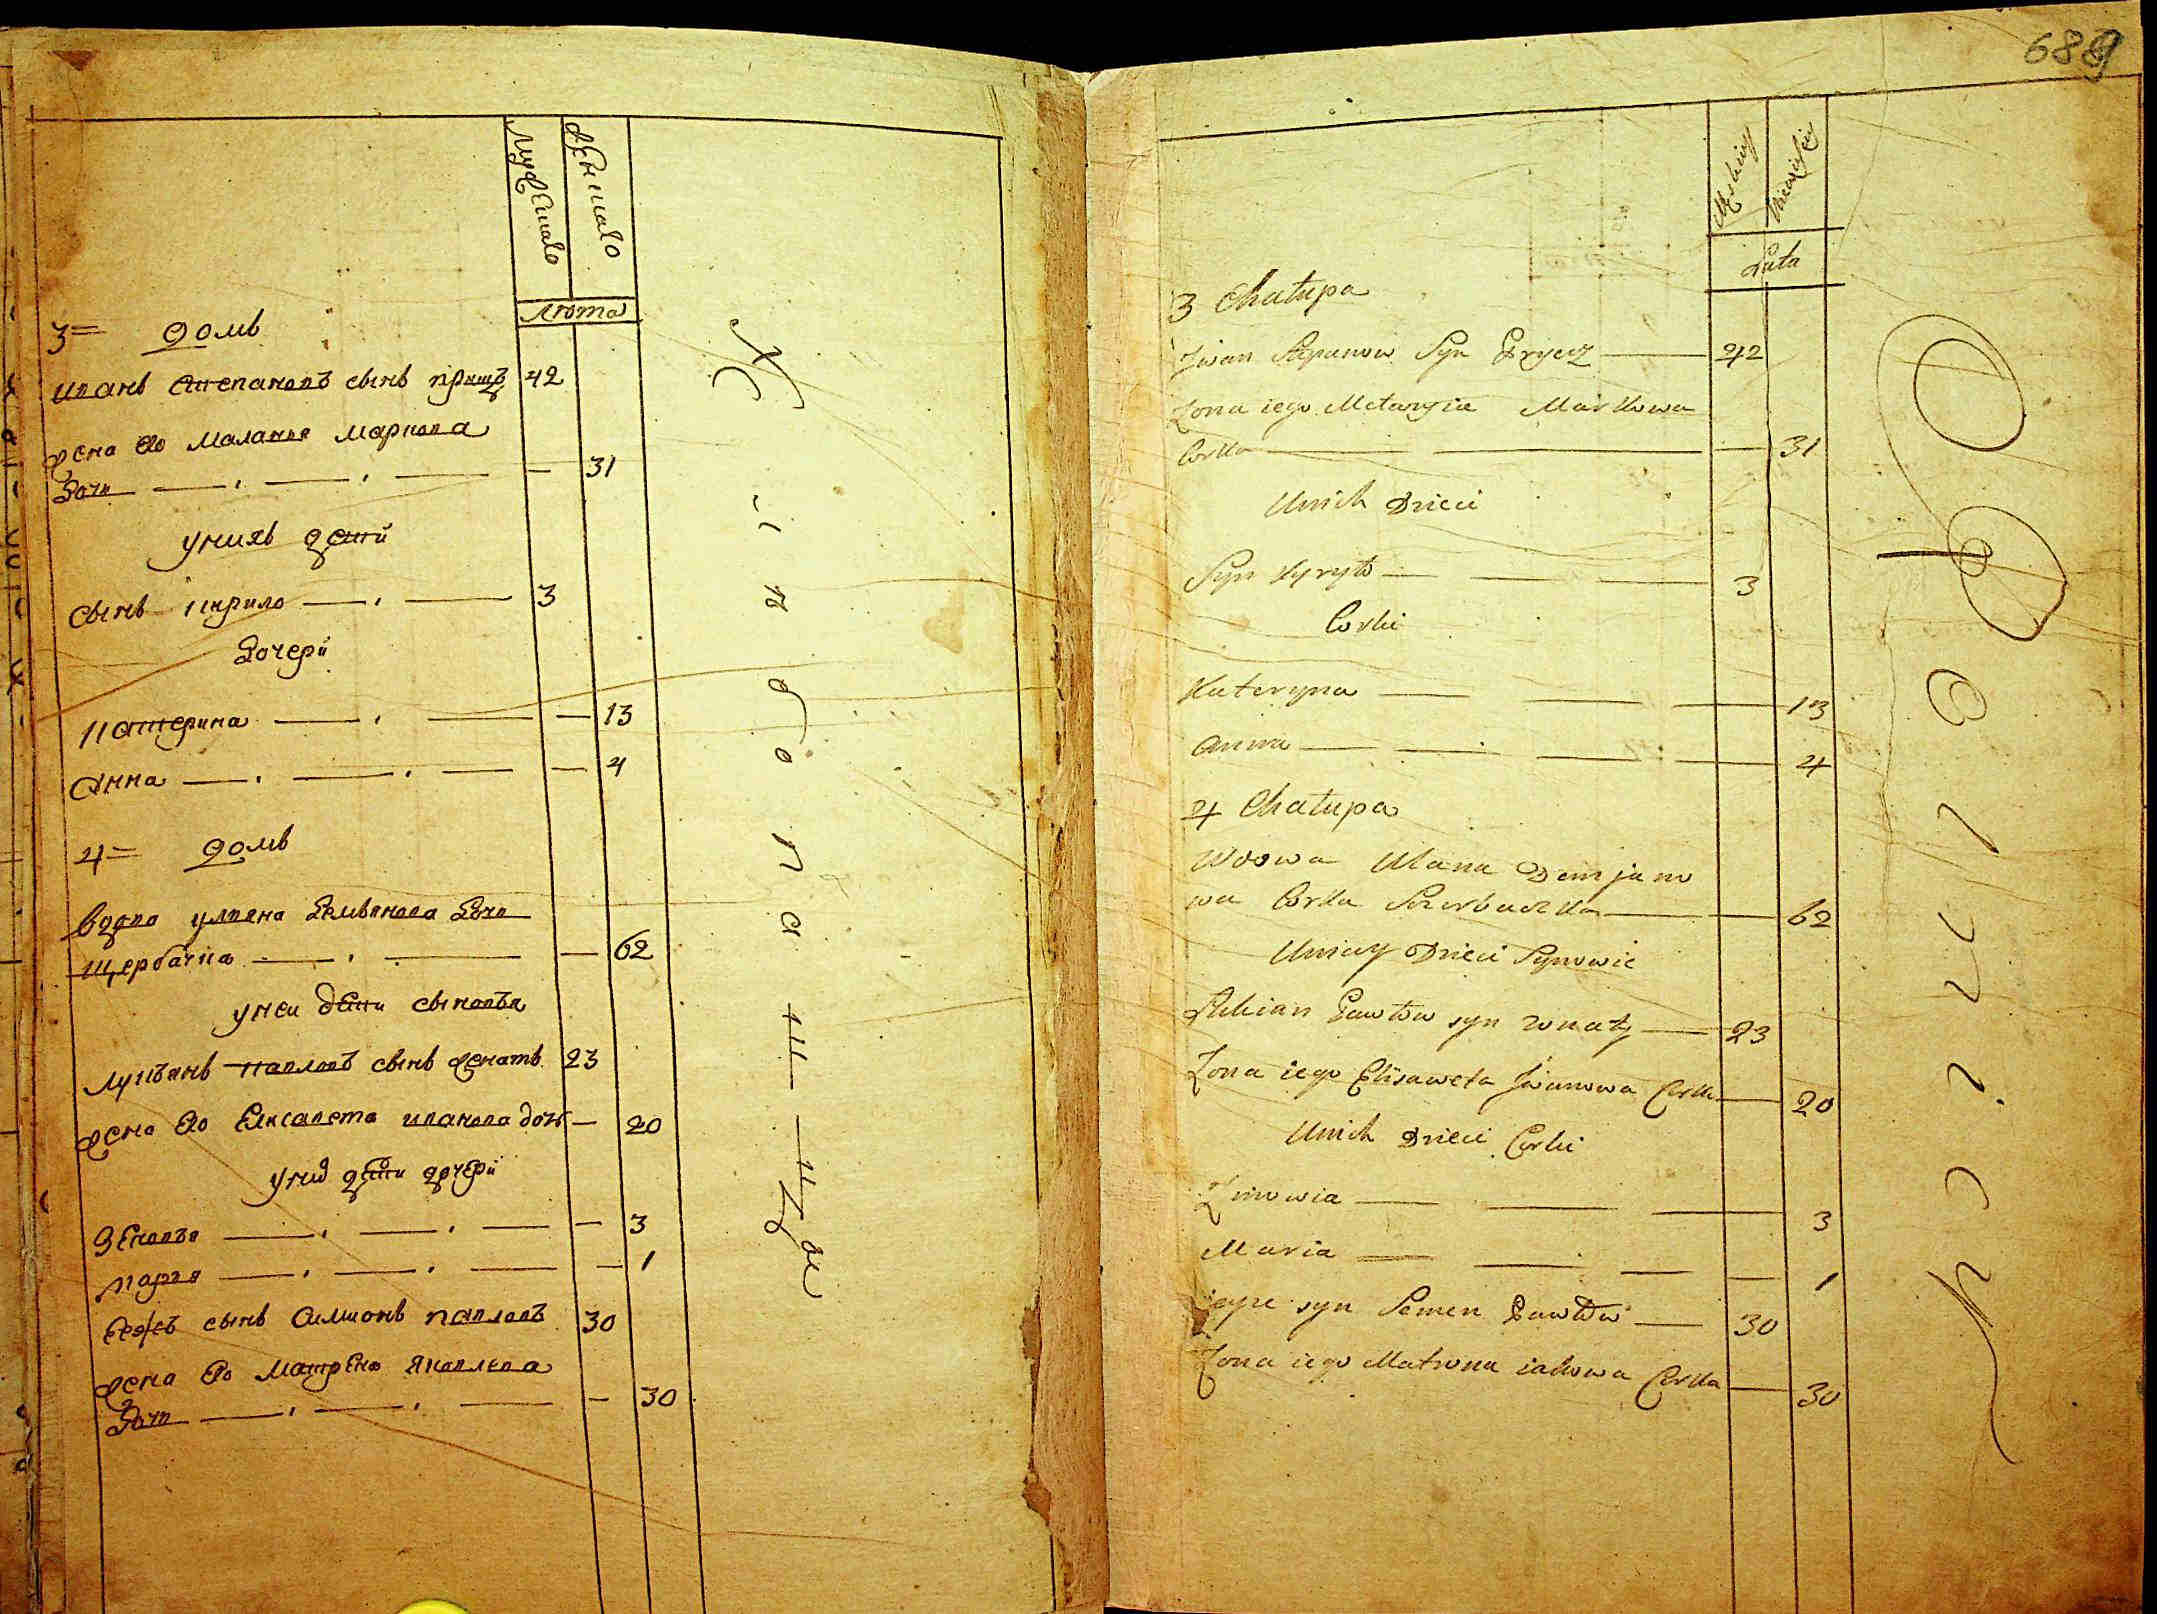 Мужеска
Женска
Люта
3= домъ
иванъ степановъ сынъ прищъ 42
жена его Маланья Маркова
дочь — 31
унихъ дети
сынъ кирило — 3
дочери
катерина — 13
Анна — 4
4= домъ
вдова уляна демьянова дочь
щербачка — 62
унеи дети сыновья
лукъянъ павловъ сынъ женатъ 23
жена его Елисавета иванова дочь — 20
унихъ дети дочери
Зеновья — 3
марья — 1
сынъ павловъ 30
жена его Матрена Яковлева
дочь — 30
689
Męskiey
Lata
3 Chałupa
Jwan Stepanow Syn Pryszcz 42
Zona iego Mełangia Markowa
Corka — 31
Unich Dzieci
Syn Kyryło — 3
Corki
Kateryna — 13
Anna — 4
4 Chałupa
Wdowa Ulana Demjano
wa Corka Szczerbaczka — 62
Uniey Dzieci Synowie
Łukian Pawłow syn zonaty — 23
Zona iego Elisaweta Jwanowa Corka — 20
Unich Dzieci Corki
Zinowia — 3
Maria — 1
syn Semen Pawłow — 30
Zona iego Matrona iakowa Corka — 30